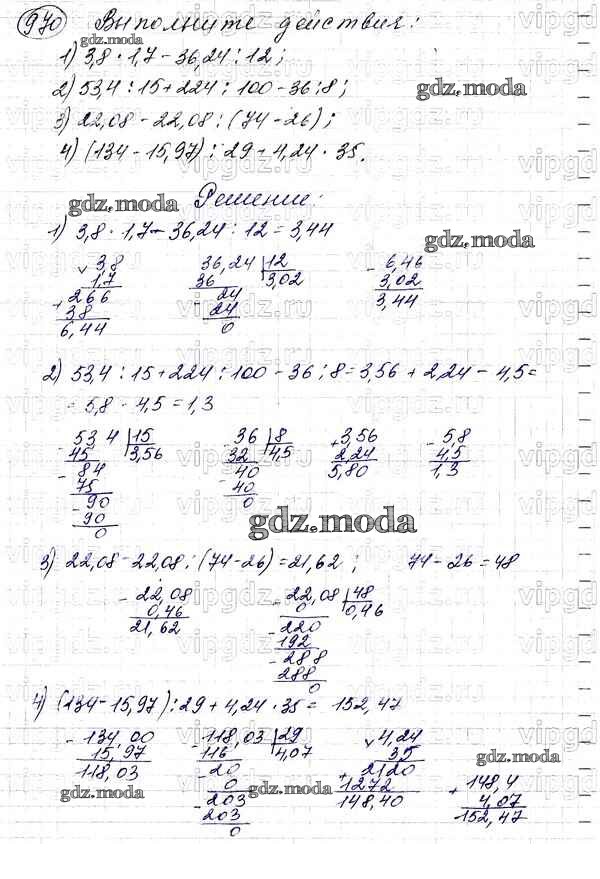 970 Выполните действия:
1) 3,8 · 1,7 - 36,24 : 12;
2) 53,4 : 15 + 224 : 100 - 36 : 8;
3) 22,08 - 22,08 : (74 - 26);
4) (134 - 15,97) : 29 + 4,24 · 35.
gdz.moda
Решение:
1) 3,8 · 1,7 - 36,24 : 12 = 3,44
3,8 36,24 12 - 6,46
1,7 36 3,02 3,02
+ 266 - 24 3,44
38 24
6,44 0
2) 53,4 : 15 + 224 : 100 - 36 : 8 = 3,56 + 2,24 - 4,5 =
= 5,8 - 4,5 = 1,3
- 53 4 15 - 36 8 + 3,56 - 5,8
45 3,56 32 4,5 2,24 4,5
- 84 - 40 5,80 1,3
75 40
- 90 0
90
0
gdz.moda
3) 22,08 - 22,08 : (74 - 26) = 21,62 ; 74 - 26 = 48
- 22,08 - 22,08 48
0,46 0 0,46
21,62 - 220
192
- 288
288
0
4) (134 - 15,97) : 29 + 4,24 · 35 = 152,47
- 134,00 - 118,03 29 4,24
15,97 116 4,07 35
118,03 - 20 + 2120 + 148,4
0 1272 4,07
- 203 148,40 152,47
203
0